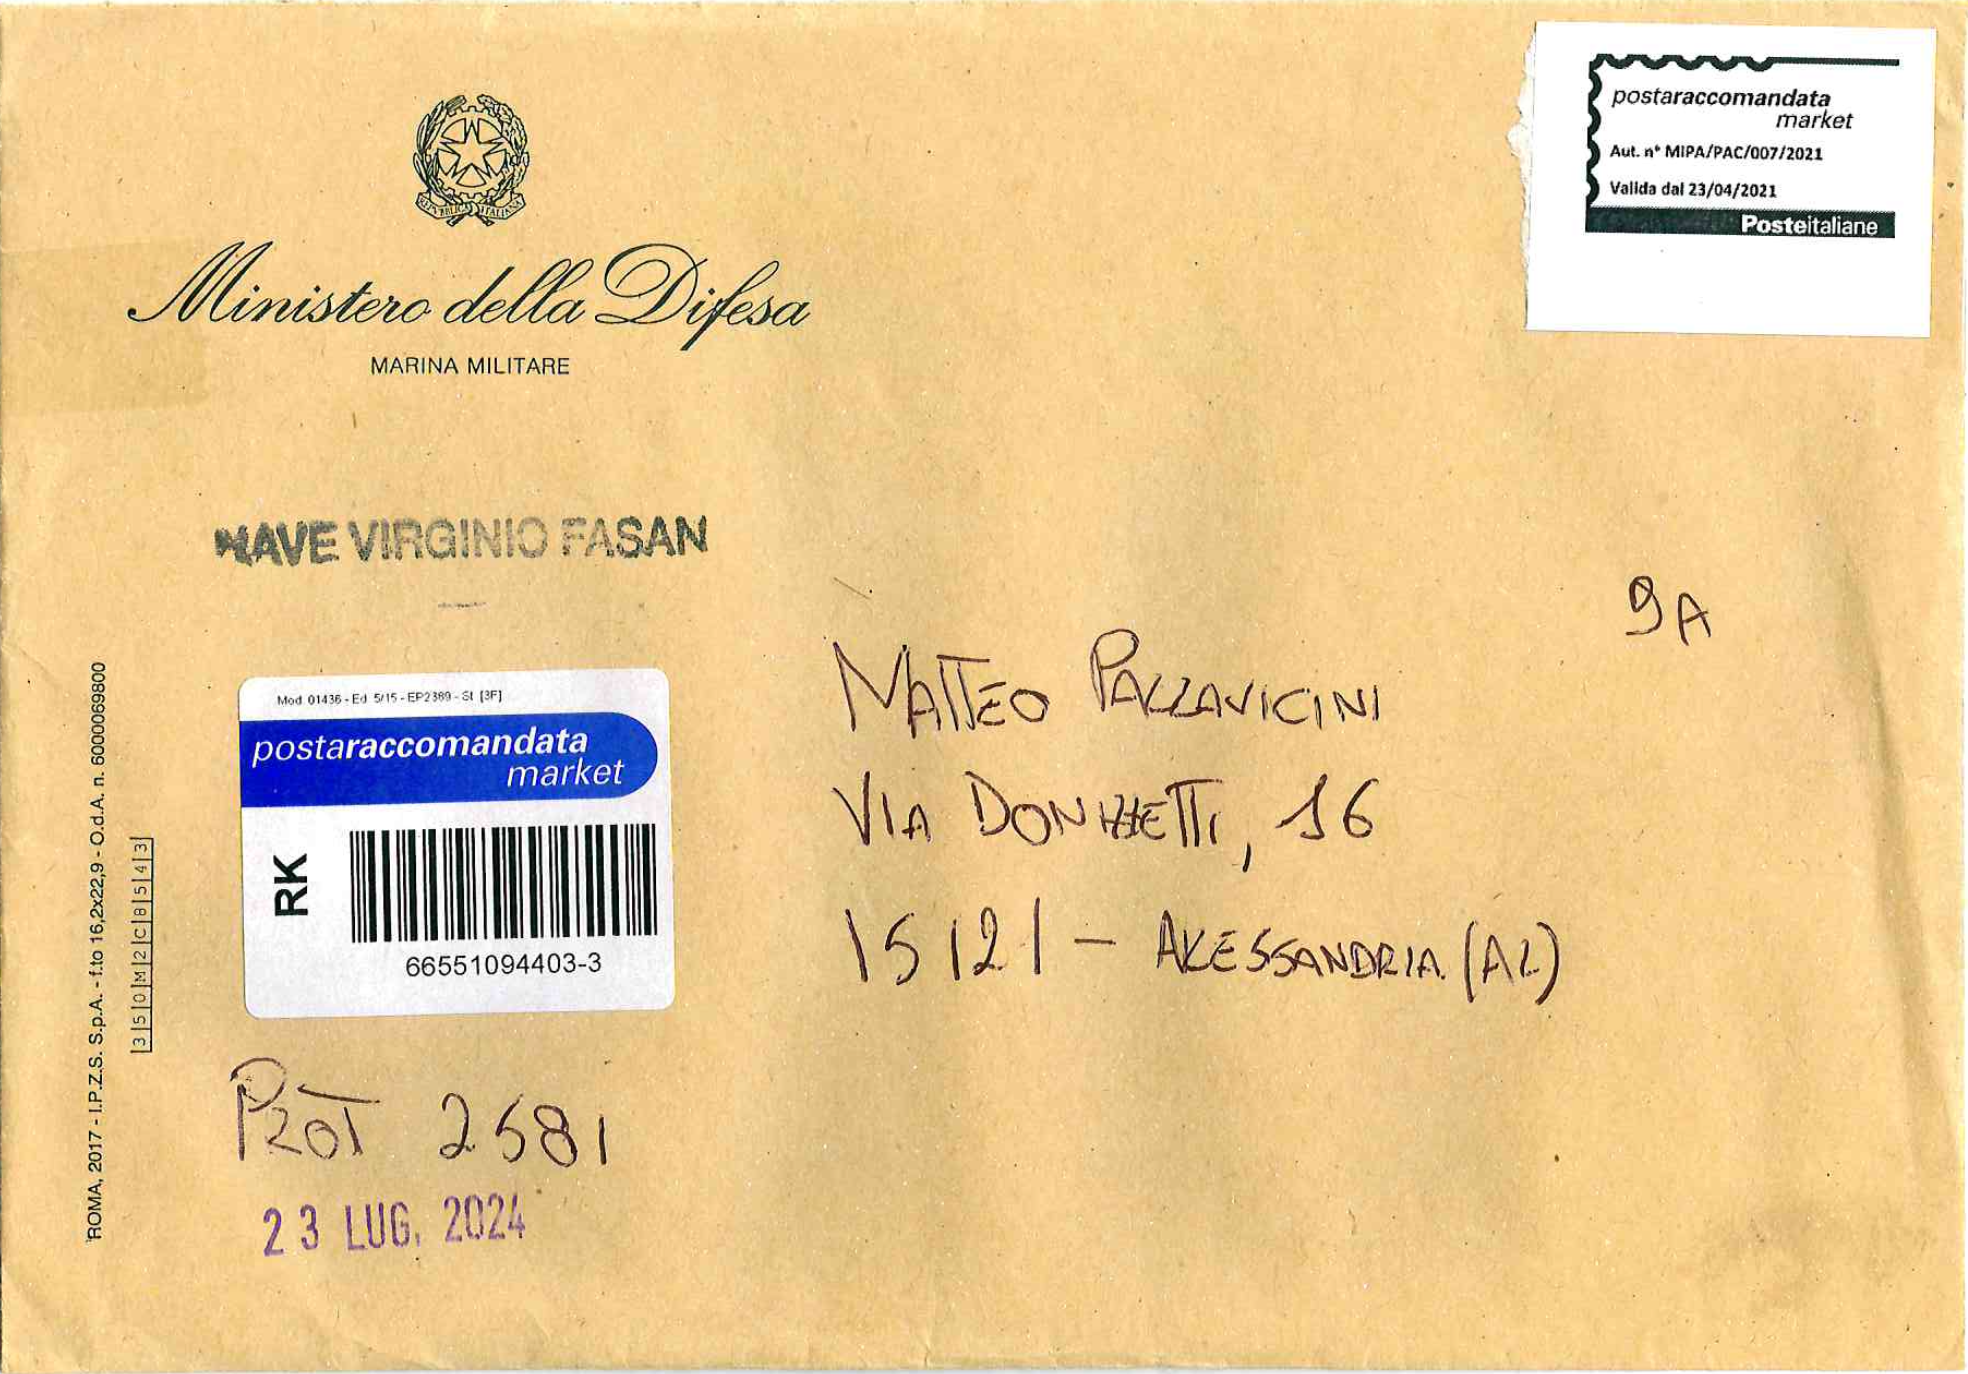 REPVBBLICA ITALIANA
Ministero della Difesa
MARINA MILITARE
postaraccomandata
market
Aut. n° MIPA/PAC/007/2021
Valida dal 23/04/2021
Posteitaliane
NAVE VIRGINIO FASAN
9A
MATTEO PALLAVICINI
VIA DONIZZETTI, 16
15121 - ALESSANDRIA (AL)
Mod. 01436 - Ed. 5/15 - EP2369 - St. [3F]
postaraccomandata
market
RK
66551094403-3
PROT 2681
23 LUG. 2024
ROMA, 2017 - I.P.Z.S. S.p.A. - f.to 16,2x22,9 - O.d.A. n. 6000069800
|3|5|0|M|2|C|8|5|4|3|